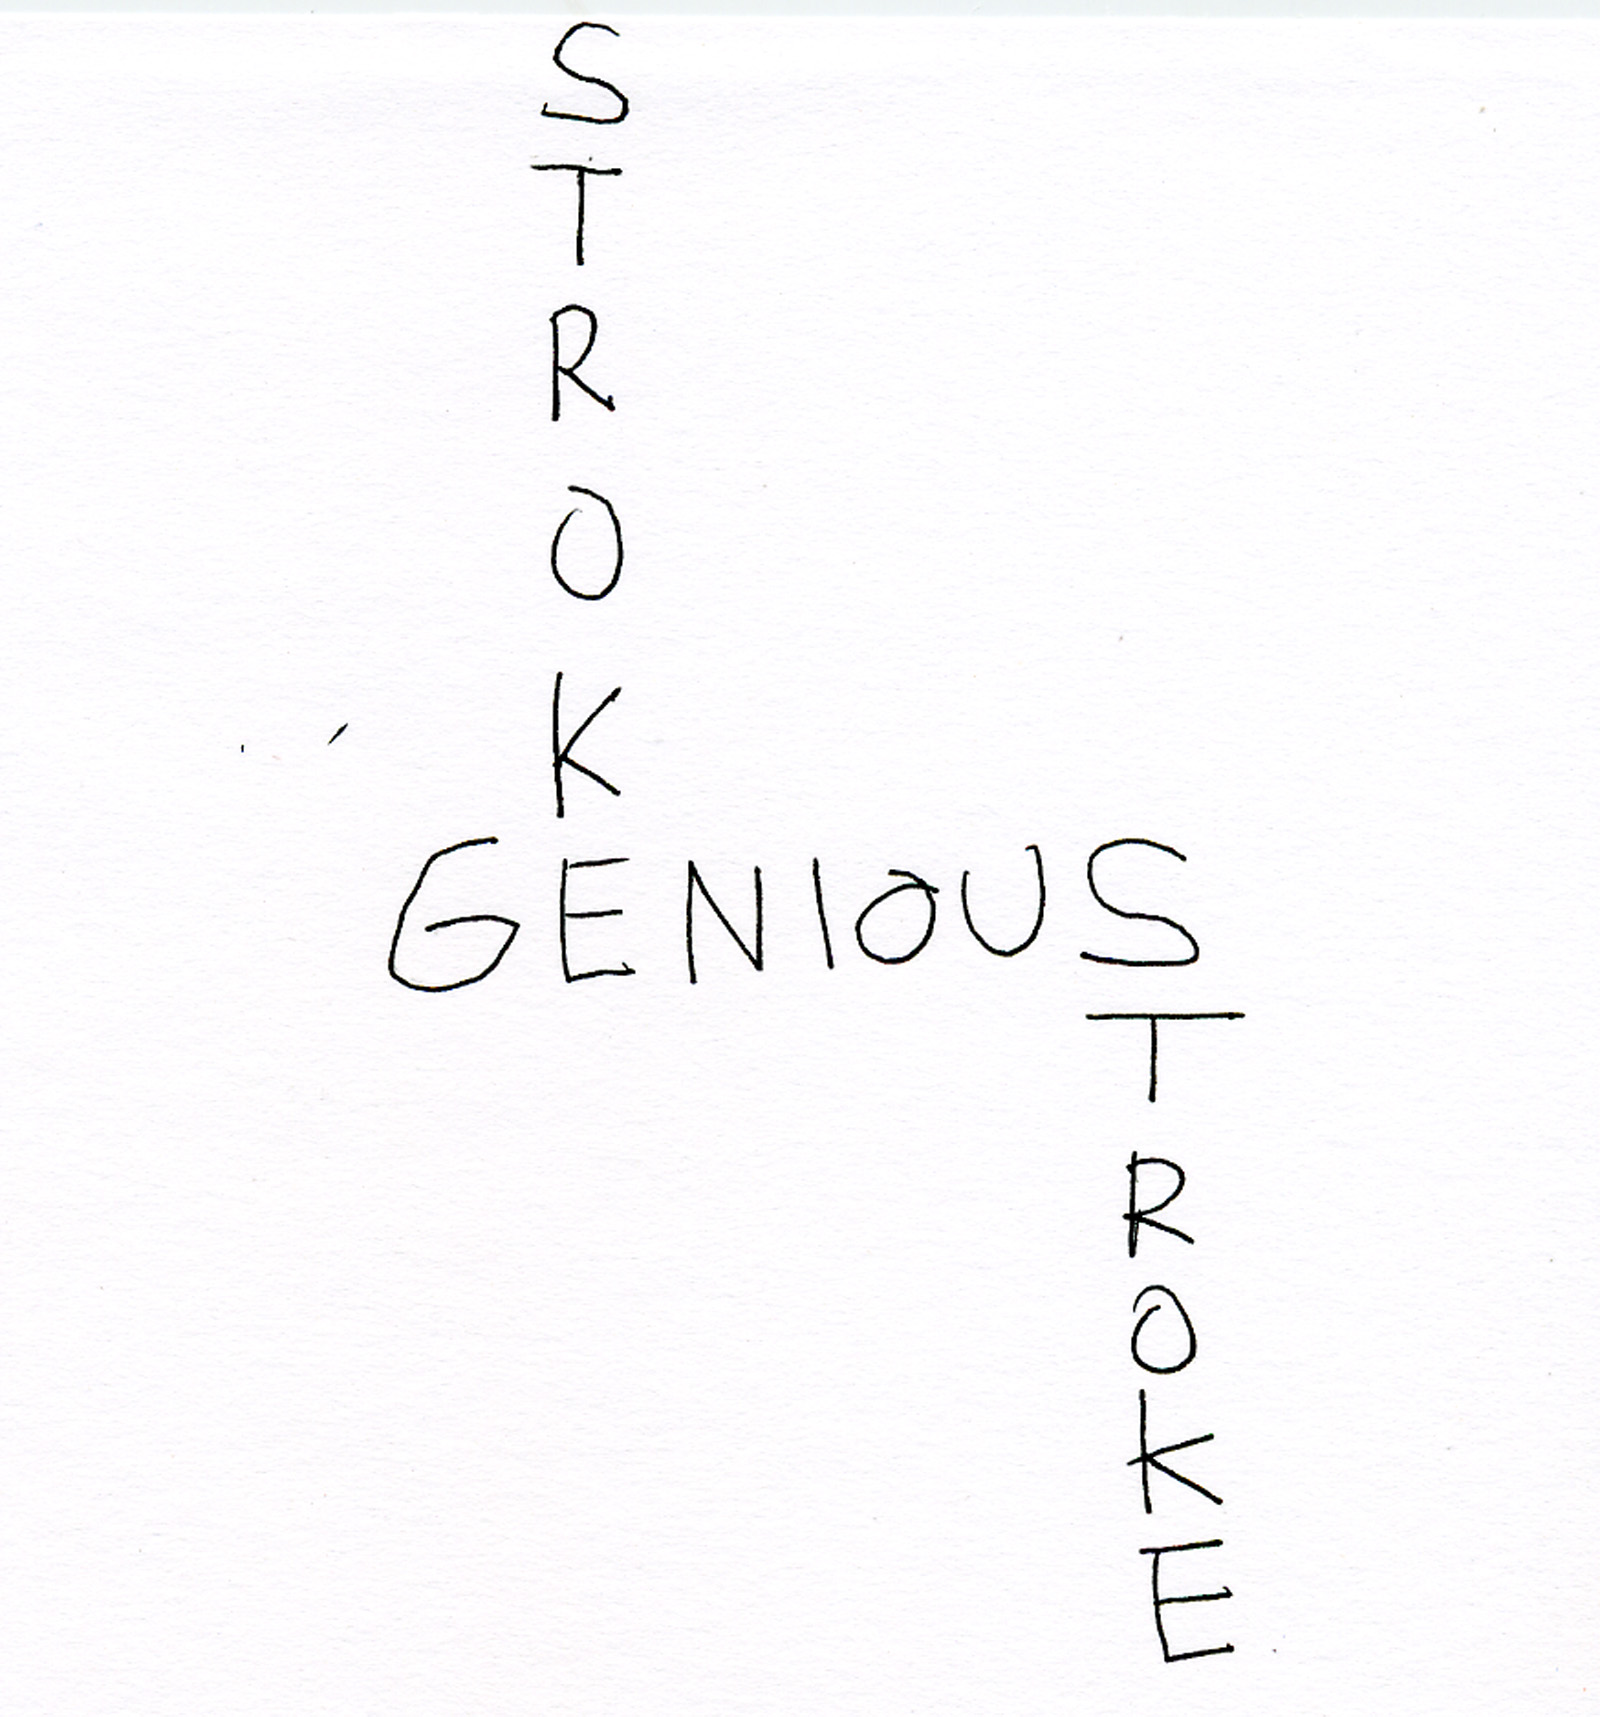 STROKE
GENIOUS
STROKE